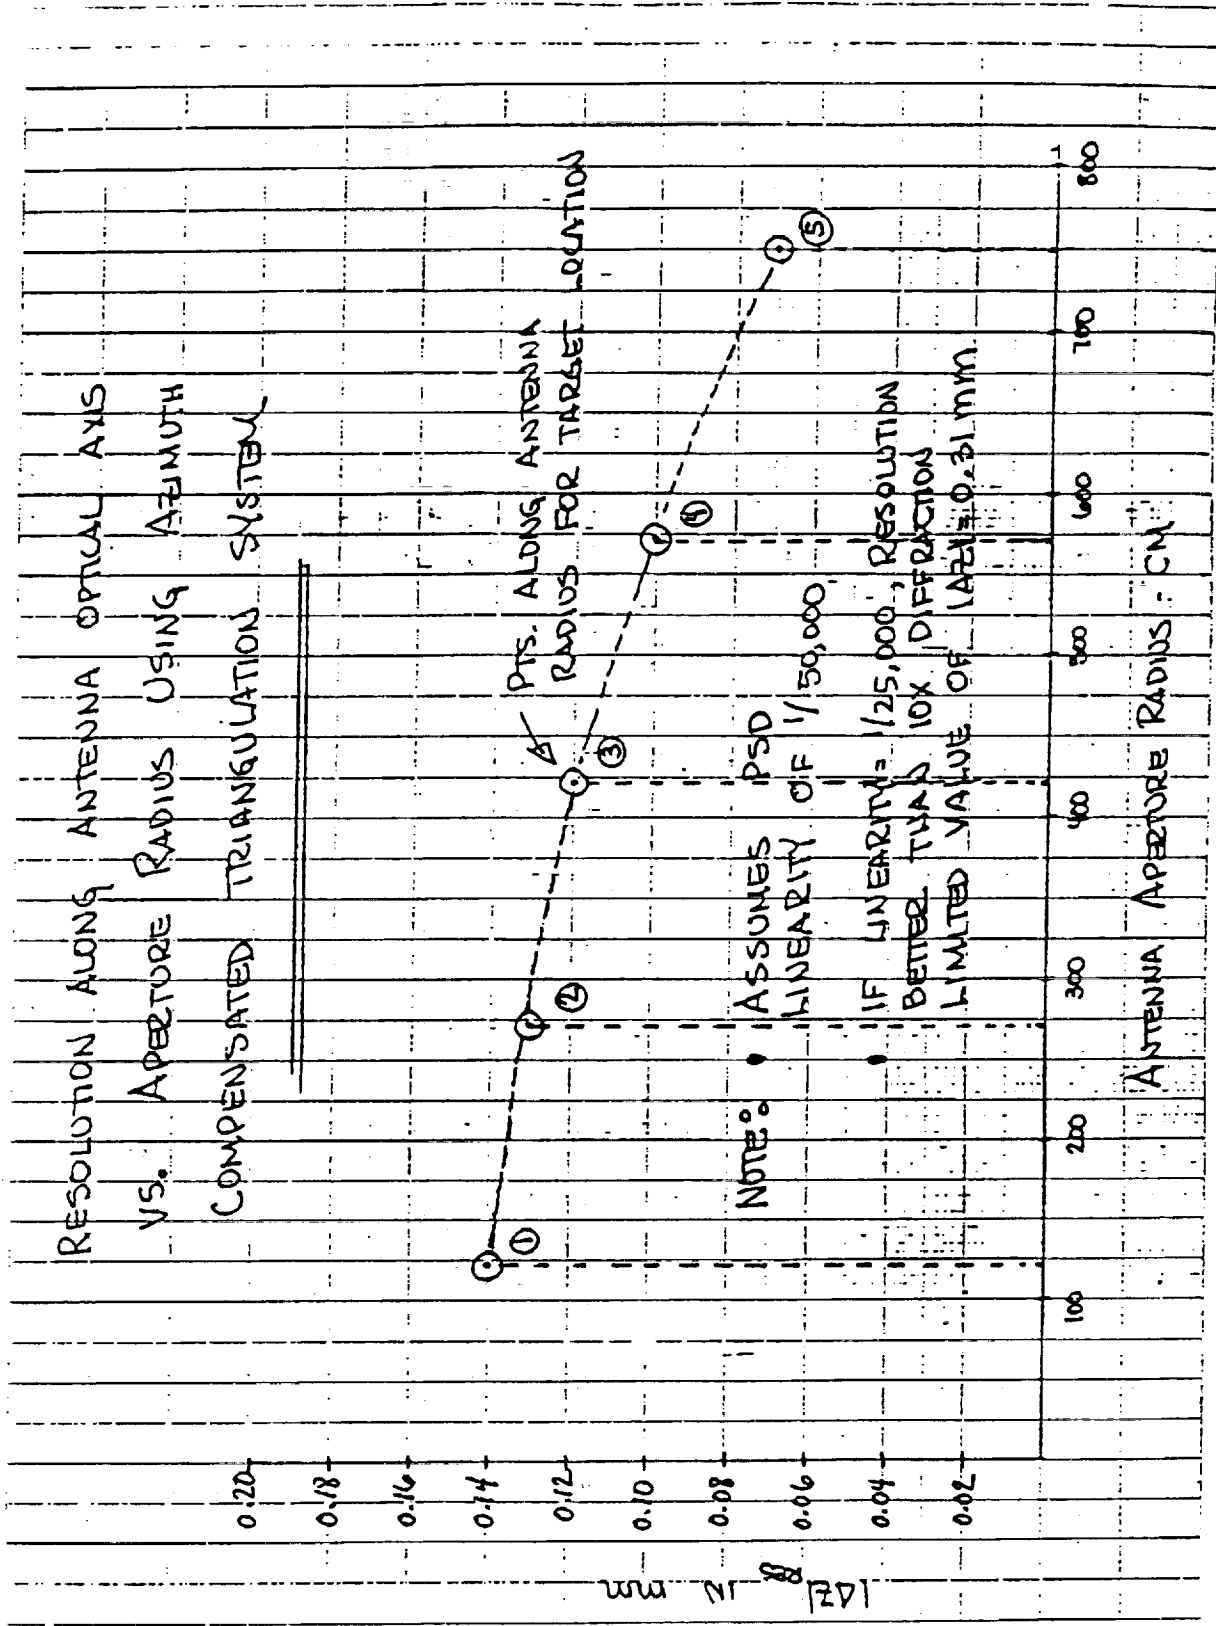 RESOLUTION ALONG ANTENNA OPTICAL AXIS
VS. APERTURE RADIUS USING AZIMUTH
COMPENSATED TRIANGULATION SYSTEM
PTS. ALONG ANTENNA
RADIUS FOR TARGET LOCATION
①
②
③
④
⑤
NOTE: • ASSUMES PSD
LINEARITY OF 1/50,000
• IF LINEARITY = 1/25,000, RESOLUTION
BETTER THAN 10X DIFFRACTION
LIMITED VALUE OF |ΔZ| = 0.31 mm
0.20
0.18
0.16
0.14
0.12
0.10
0.08
0.06
0.04
0.02
|ΔZ| IN mm
100
200
300
400
500
600
700
800
ANTENNA APERTURE RADIUS : CM